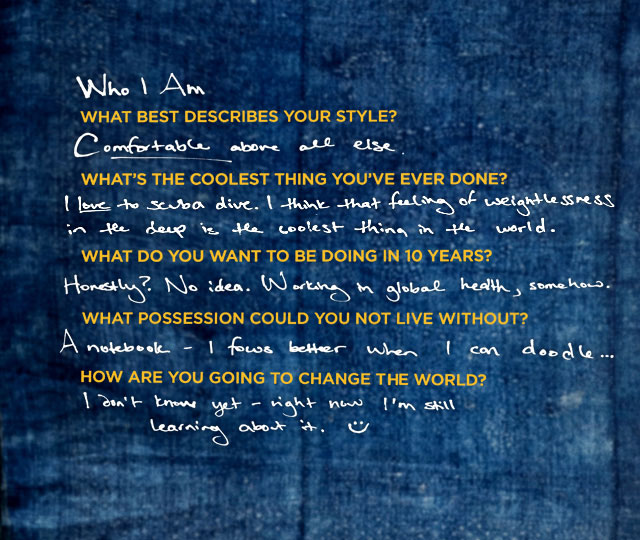 Who I Am
WHAT BEST DESCRIBES YOUR STYLE?
Comfortable above all else.
WHAT'S THE COOLEST THING YOU'VE EVER DONE?
I love to scuba dive. I think that feeling of weightlessness
in the deep is the coolest thing in the world.
WHAT DO YOU WANT TO BE DOING IN 10 YEARS?
Honestly? No idea. Working in global health, somehow.
WHAT POSSESSION COULD YOU NOT LIVE WITHOUT?
A notebook - I focus better when I can doodle...
HOW ARE YOU GOING TO CHANGE THE WORLD?
I don't know yet - right now I'm still
learning about it. :)